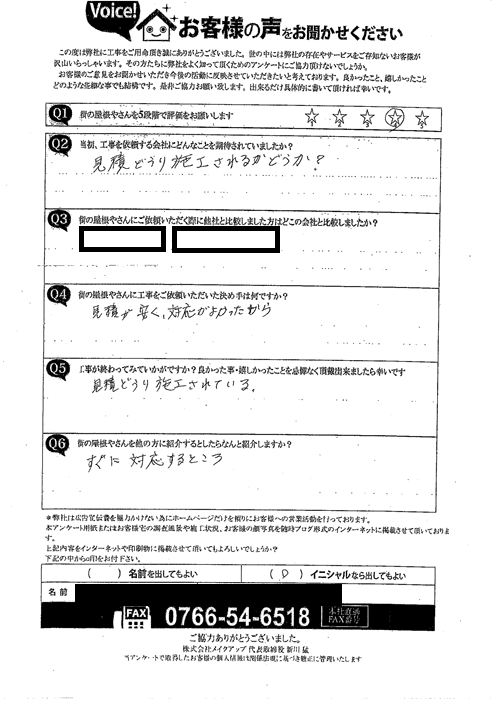 Voice!
お客様の声をお聞かせください
この度は弊社に工事をご用命頂き誠にありがとうございました。世の中には弊社の存在やサービスをご存知ないお客様が
沢山いらっしゃいます。その方たちに弊社をよく知って頂くためのアンケートにご協力頂けないでしょうか。
お客様のご意見をお聞かせいただき今後の活動に反映させていただきたいと考えております。良かったこと、嬉しかったこと
どのような些細な事でも結構です。是非ご協力お願い致します。出来るだけ具体的に書いて頂ければ幸いです。
Q1 街の屋根やさんを5段階で評価をお願いします
Q2 当初、工事を依頼する会社にどんなことを期待されていましたか?
見積どうり施工されるかどうか?
Q3 街の屋根やさんにご依頼いただく際に他社と比較しました方はどこの会社と比較しましたか?
Q4 街の屋根やさんに工事をご依頼いただいた決め手は何ですか?
見積が安く、対応がよかったから
Q5 工事が終わってみていかがですか?良かった事・嬉しかったことを忌憚なく頂戴出来ましたら幸いです
見積どうり施工されている。
Q6 街の屋根やさんを他の方に紹介するとしたらなんと紹介しますか?
すぐに対応するところ
*弊社は広告宣伝費を極力かけない為にホームページだけを頼りにお客様への営業活動を行っております。
本アンケート用紙またはお客様宅の調査風景や施工状況、お客様の顔写真を随時ブログ形式のインターネットに掲載させて頂いておりま
す。
上記内容をインターネットや印刷物に掲載させて頂いてもよろしいでしょうか?
下記の中から○印をお付け下さい。
( ) 名前を出してもよい
( ○ ) イニシャルなら出してもよい
名前
FAX 0766-54-6518 本社直通 FAX番号
ご協力ありがとうございました。
株式会社メイクアップ 代表取締役 新川 猛
当アンケートで取得したお客様の個人情報は関係法規に基づき厳正に管理いたします